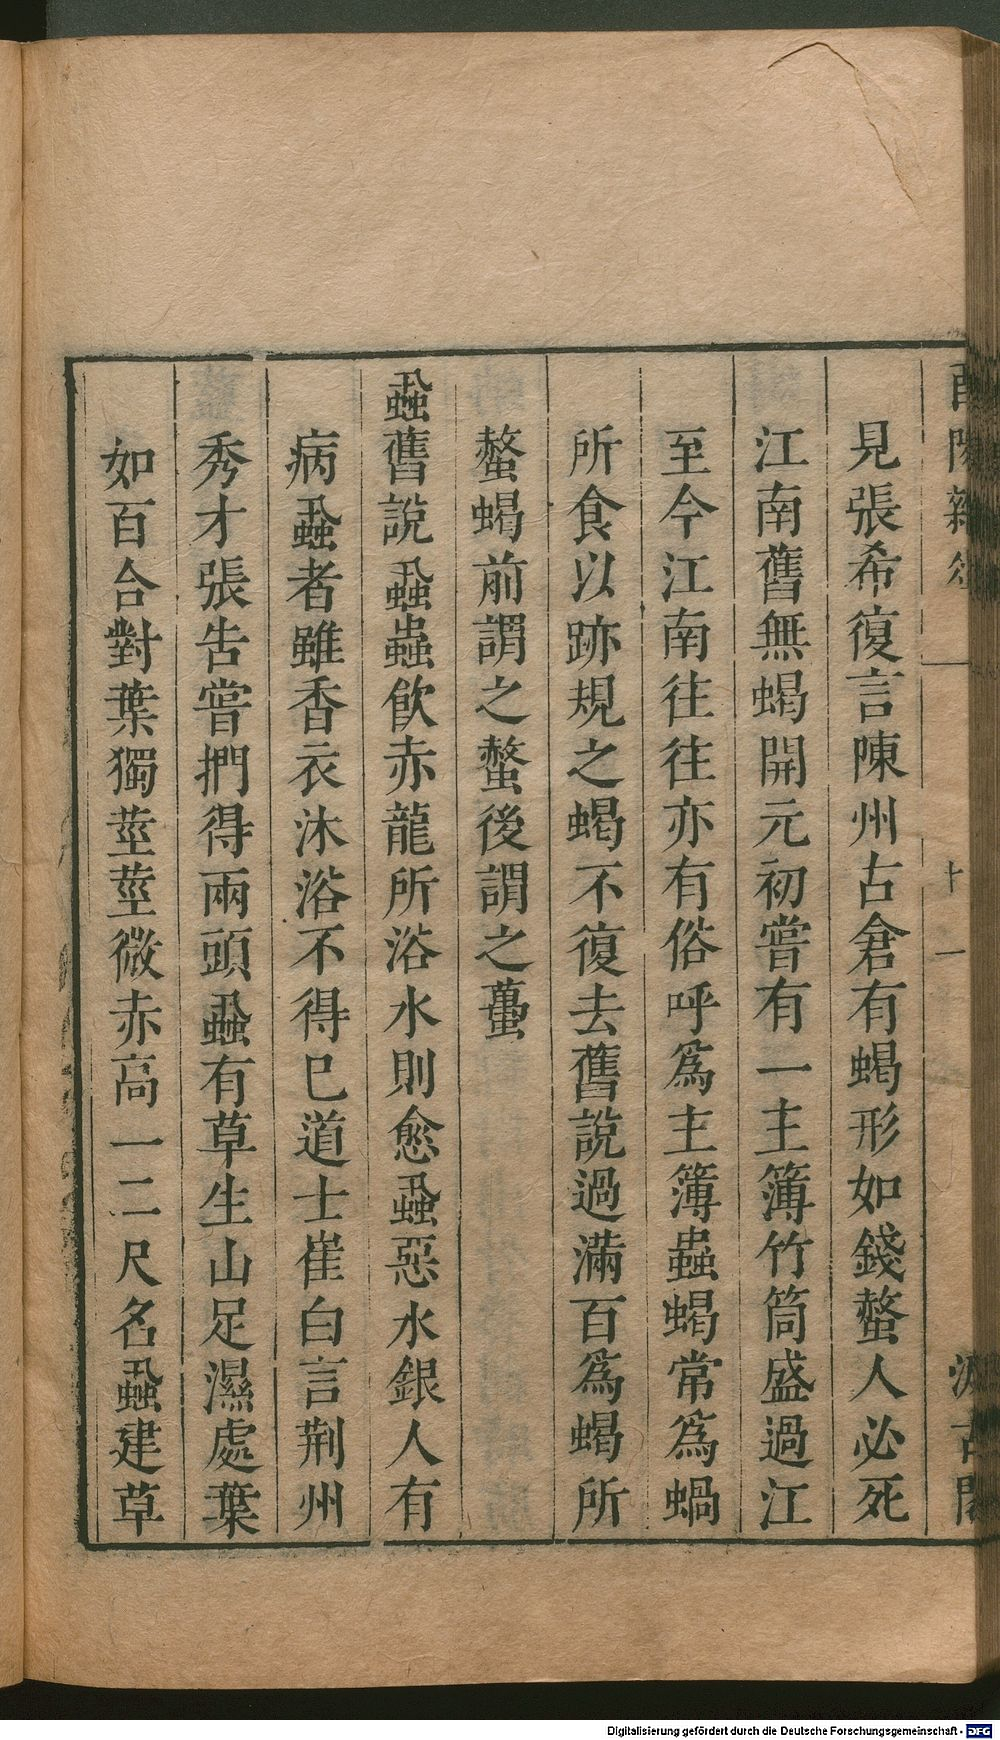 酉陽雜俎 十一 汲古閣
見張希復言陳州古倉有蝎形如錢螫人必死
江南舊無蝎開元初嘗有一主簿竹筒盛過江
至今江南往往亦有俗呼爲主簿蟲蝎常爲蝸
所食以跡規之蝎不復去舊說過滿百爲蝎所
螫蝎前謂之螫後謂之蠆
蝨舊說蝨蟲飲赤龍所浴水則愈蝨惡水銀人有
病蝨者雖香衣沐浴不得巳道士崔白言荆州
秀才張告嘗捫得兩頭蝨有草生山足濕處葉
如百合對葉獨莖莖微赤高一二尺名蝨建草
Digitalisierung gefördert durch die Deutsche Forschungsgemeinschaft - DFG